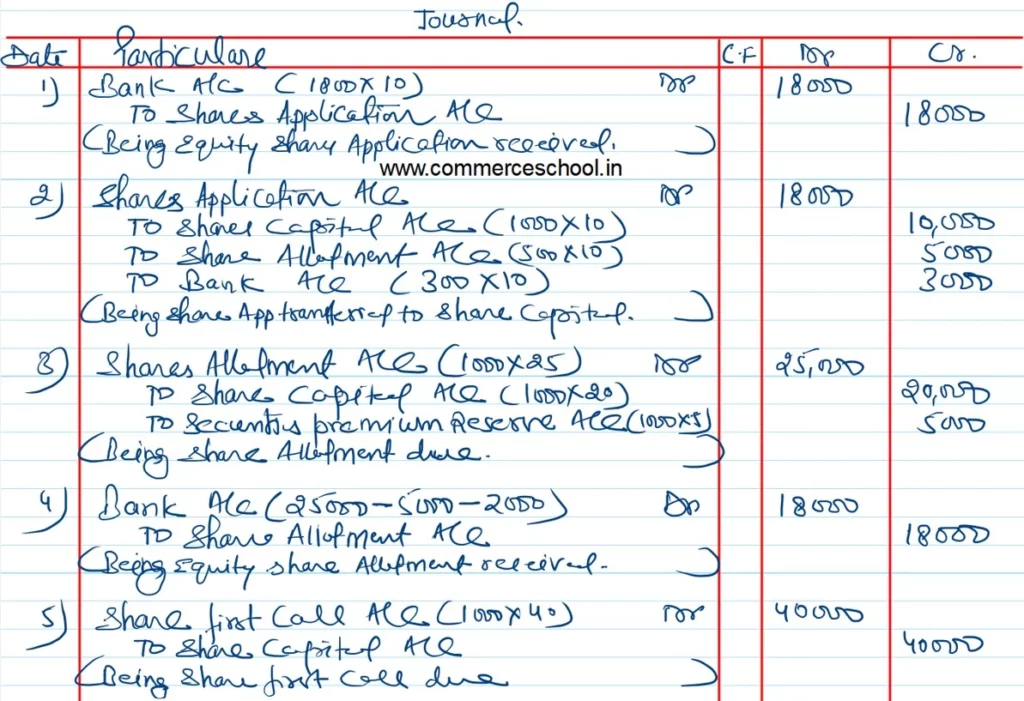 Journal.
Date Particulars C.F Dr Cr.
1) Bank A/C (1800×10) Dr 18000
To Shares Application A/c 18000
(Being Equity Share Application received.)
www.commerceschool.in
2) Shares Application A/c Dr 18000
To Share Capital A/c (1000×10) 10,000
To Share Allotment A/c (500×10) 5000
To Bank A/c (300×10) 3000
(Being Share App transferred to Share Capital.)
3) Shares Allotment A/c (1000×25) Dr 25,000
To Share Capital A/c (1000×20) 20,000
To Securities premium Reserve A/c (1000×5) 5000
(Being Share Allotment due.)
4) Bank A/c (25000-5000-2000) Dr 18000
To Share Allotment A/c 18000
(Being Equity share Allotment received.)
5) Share first Call A/c (1000×40) Dr 40000
To Share Capital A/c 40000
(Being Share first Call due)